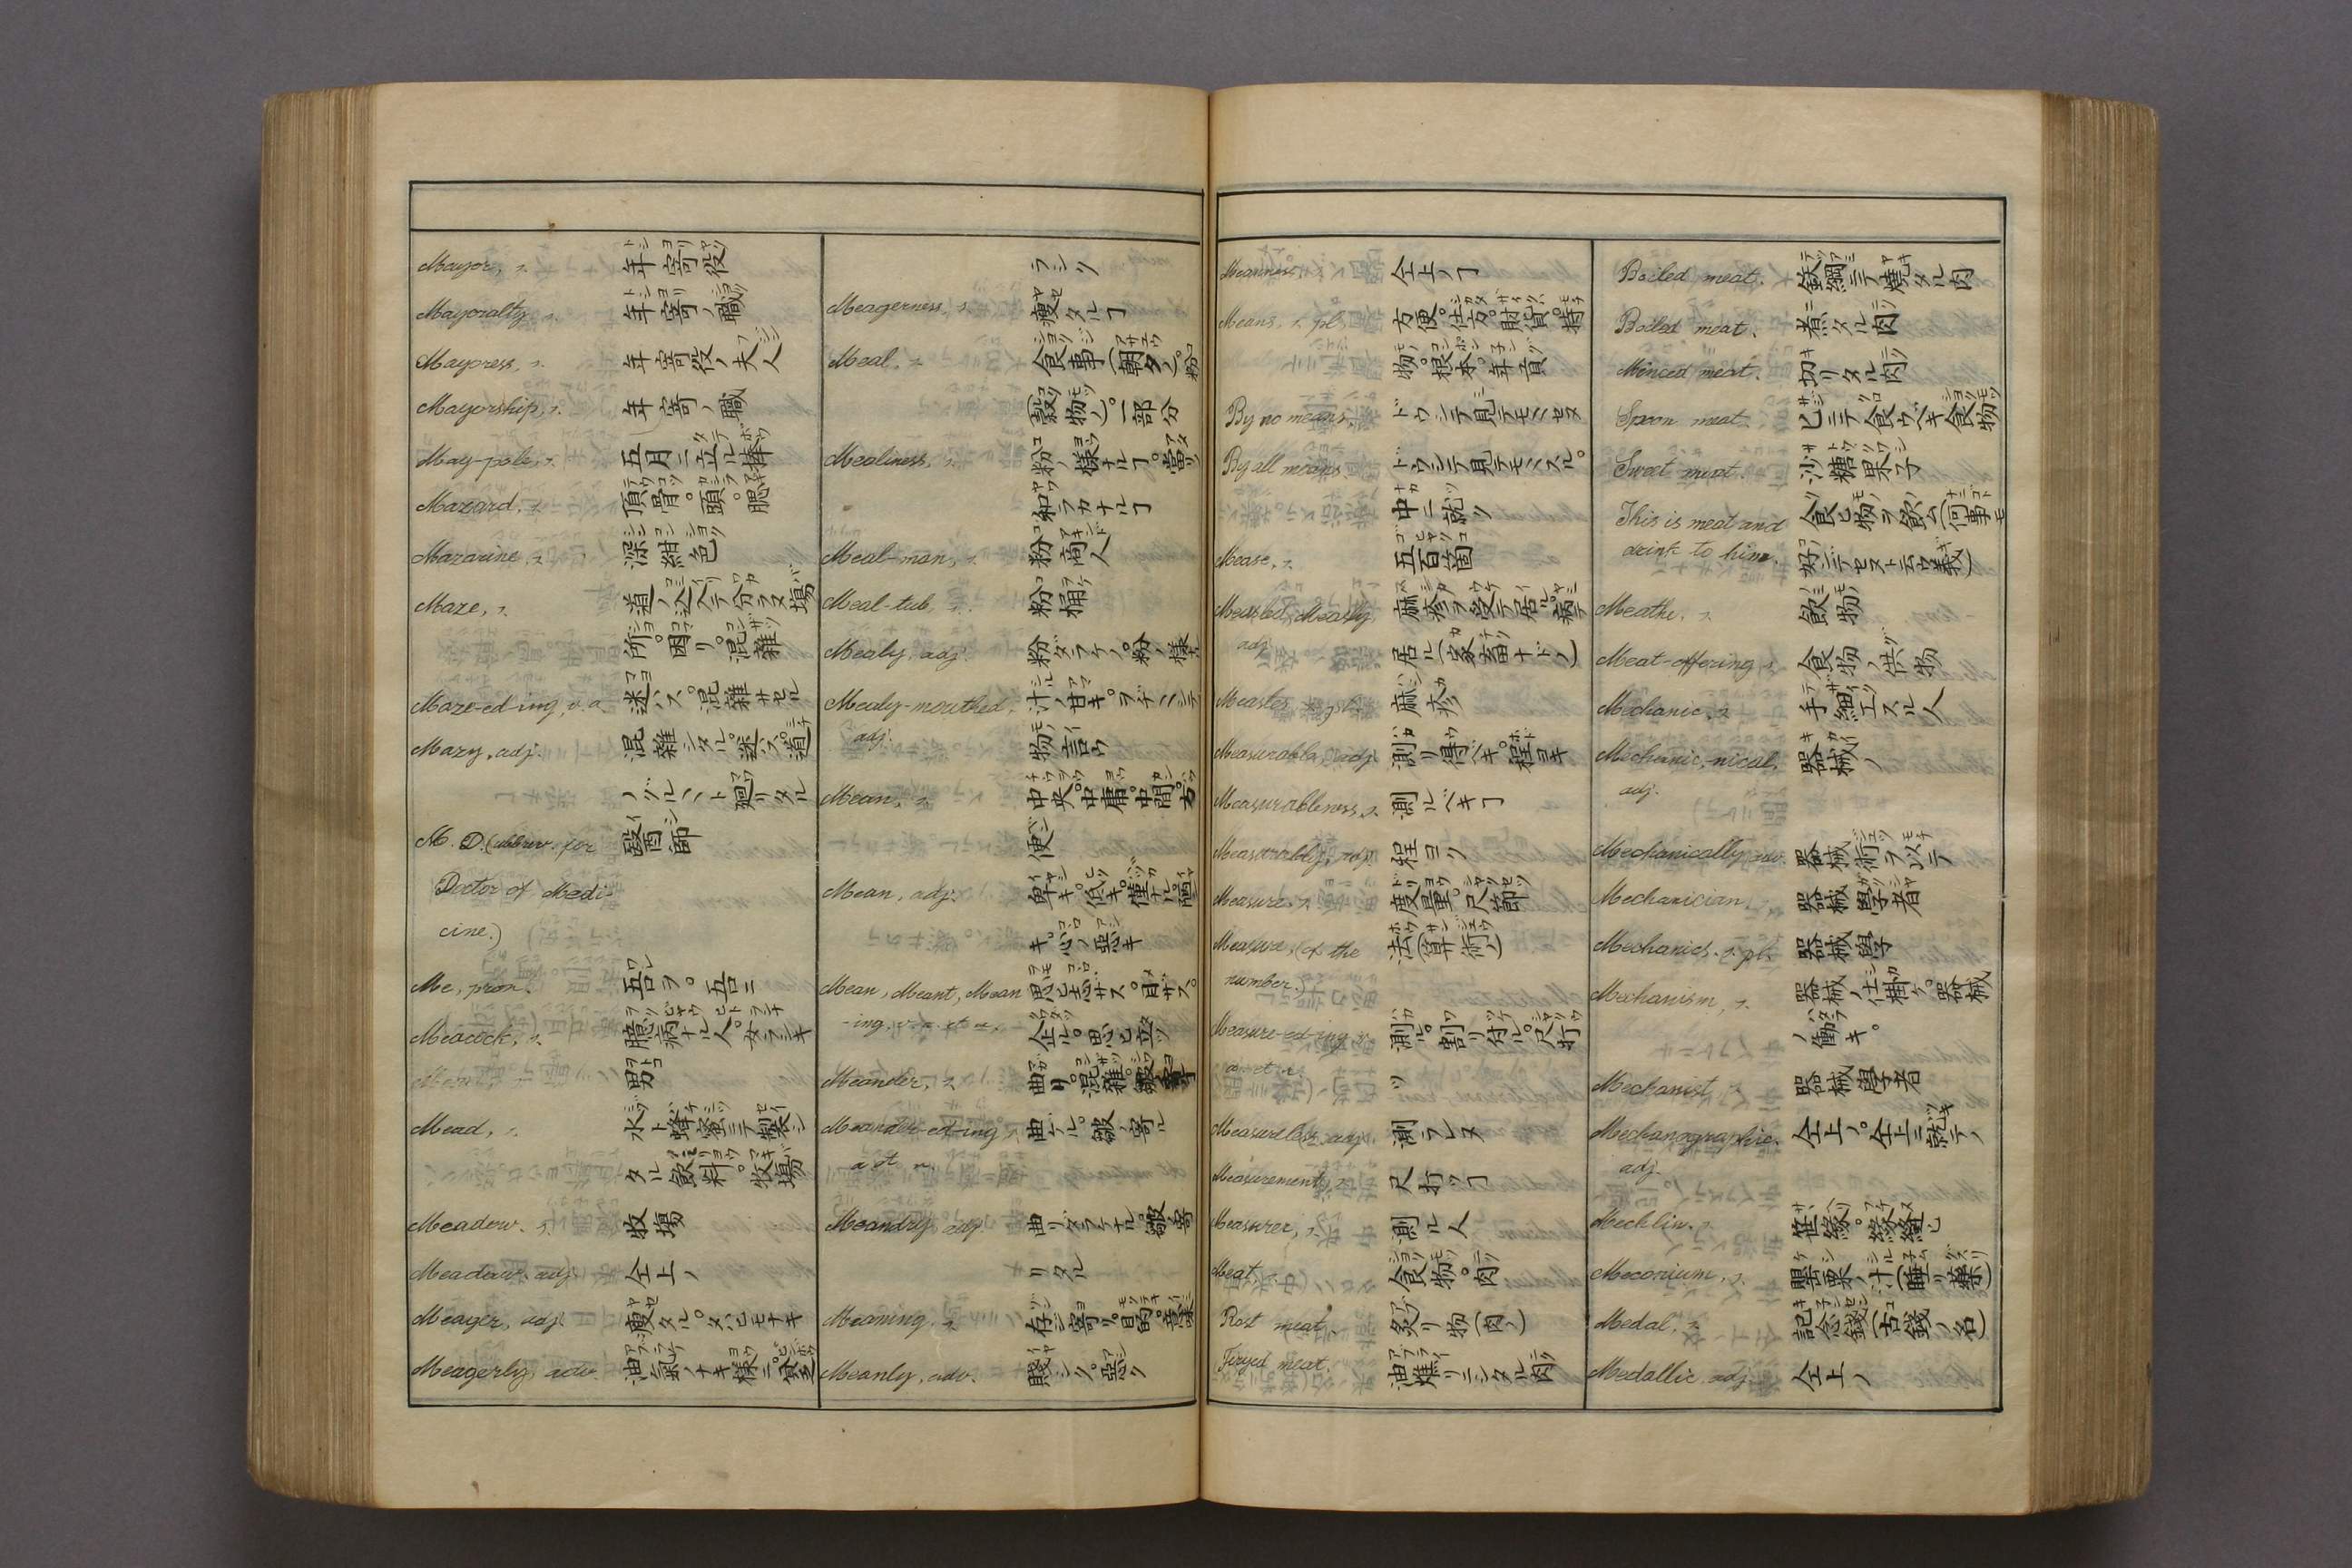 Mayor, s. 年寄役
Mayoralty, s. 年寄ノ職
Mayoress, s. 年寄役ノ夫人
Mayorship, s. 年寄ノ職
May-pole, s. 五月ニ立ル棒
Mazard, s. 頂骨。頭。腮
Mazarine, s. 深紺色
Maze, s. 道ノ込入テ分ラヌ場
所。困リ。混雜
Maze-ed-ing, v. a. 迷ハス。混雜サセル
Mazy, adj. 混雜シタル。迷ハス。道
ノグルヽト廻リタル
M. D. (abbrev. for 醫師
Doctor of Medi-
cine.)
Me, pron. 吾ヲ。吾ニ
Meacock, s. 臆病ナル人。女ラシキ
男
Mead, s. 水ト蜂蜜ニテ製シ
タル飲料。牧場
Meadow, s. 牧場
Meadow, adj. 仝上ノ
Meager, adj. 瘦タル。タハヒモナキ
Meagerly, adv. 油氣ノナキ樣ニ。貧乏
ラシク
Meagerness, s. 瘦タルヿ
Meal, s. 食事(朝夕ノ)。粉
(穀物ノ)。一部分
Mealiness, s. 粉ノ樣ナルヿ。當リ
和ラカナルヿ
Meal-man, s. 粉商人
Meal-tub, s. 粉桶
Mealy, adj. 粉ダラケノ。粉ノ樣ナ
Mealy-mouthed, 汁ノ甘キ。ヲチヽシテ
adj. 物言ウ
Mean, s. 中央。中庸。中間。方
便
Mean, adj. 卑キ。低キ。僅ナル。
キ。心ノ惡キ
Mean, Meant, Mean 思ヒ志サス。目サス。
-ing, v. a. et n. 企ル。思ヒ立ツ
Meander, s. 曲リ。混雜。皺寄
Meander-ed-ing, 曲ル。皺ノ寄ル
a et n.
Meandry, adj. 曲リダラケナル。皺寄
リタル
Meaning, s. 存シ寄リ。目的。意味
Meanly, adv. 賤シク。惡ク
Meanness, s. 仝上ノヿ
Means, s. pl. 方便。仕方。財貨。持
物。根本。年貢
By no means, ドウシテ見テモヽセヌ
By all means. ドウシテ見テモヽスル。
中ニ就ク
Mease, s. 五百箇
Measled, Measly, 麻疹ヲ受テ居ル。病テ
adj. 居ル(家畜ナドノ)
Measles, s. pl. 麻疹
Measurable, adj. 測リ得ベキ。程ヨキ
Measurableness, s. 測ルベキヿ
Measurably, adj. 程ヨク
Measure, s. 度量。尺節
Measure, (of the 法(算術ノ)
number.)
Measure-ed-ing, v. 測ル。割リ付ル。尺打
a. et n. ツ
Measureless, adj. 測ラレヌ
Measurement, s. 尺打ツヿ
Measurer, s. 測ル人
Meat, s. 食物。肉
Rost meat, 炙リ物(肉ノ)
Firyed meat. 油煠リニシタル肉
Boiled meat. 鉄網ニテ燒タル肉
Boiled meat. 煮タル肉
Minced meat. 切リタル肉
Spoon meat. 匕ニテ食ウベキ食物
Sweet meat. 沙糖果子
This is meat and 食ヒ物ヲ飲ム(何事モ
drink to him. 好ンテセヌト云フ義)
Meathe, s. 飲物
Meat-offering, s. 食物ノ供物
Mechanic, s. 手細工スル人
Mechanic, -nical, 器械ノ
adj.
Mechanically, adv. 器械術ヲ以テ
Mechanician, 器械學者
Mechanics, s. pl. 器械學
Mechanism, s. 器械ノ仕掛ケ。器械
ノ働キ。
Mechanist, 器械學者
Mechanographic, 仝上ノ。仝上ニ就テノ
adj.
Mechlin, s. 笹緣。緣縫ヒ
Meconium, s. 罌粟ノ汁(睡リ藥)
Medal, s. 記念錢(古錢ノ名)
Medallic, adj. 仝上ノ